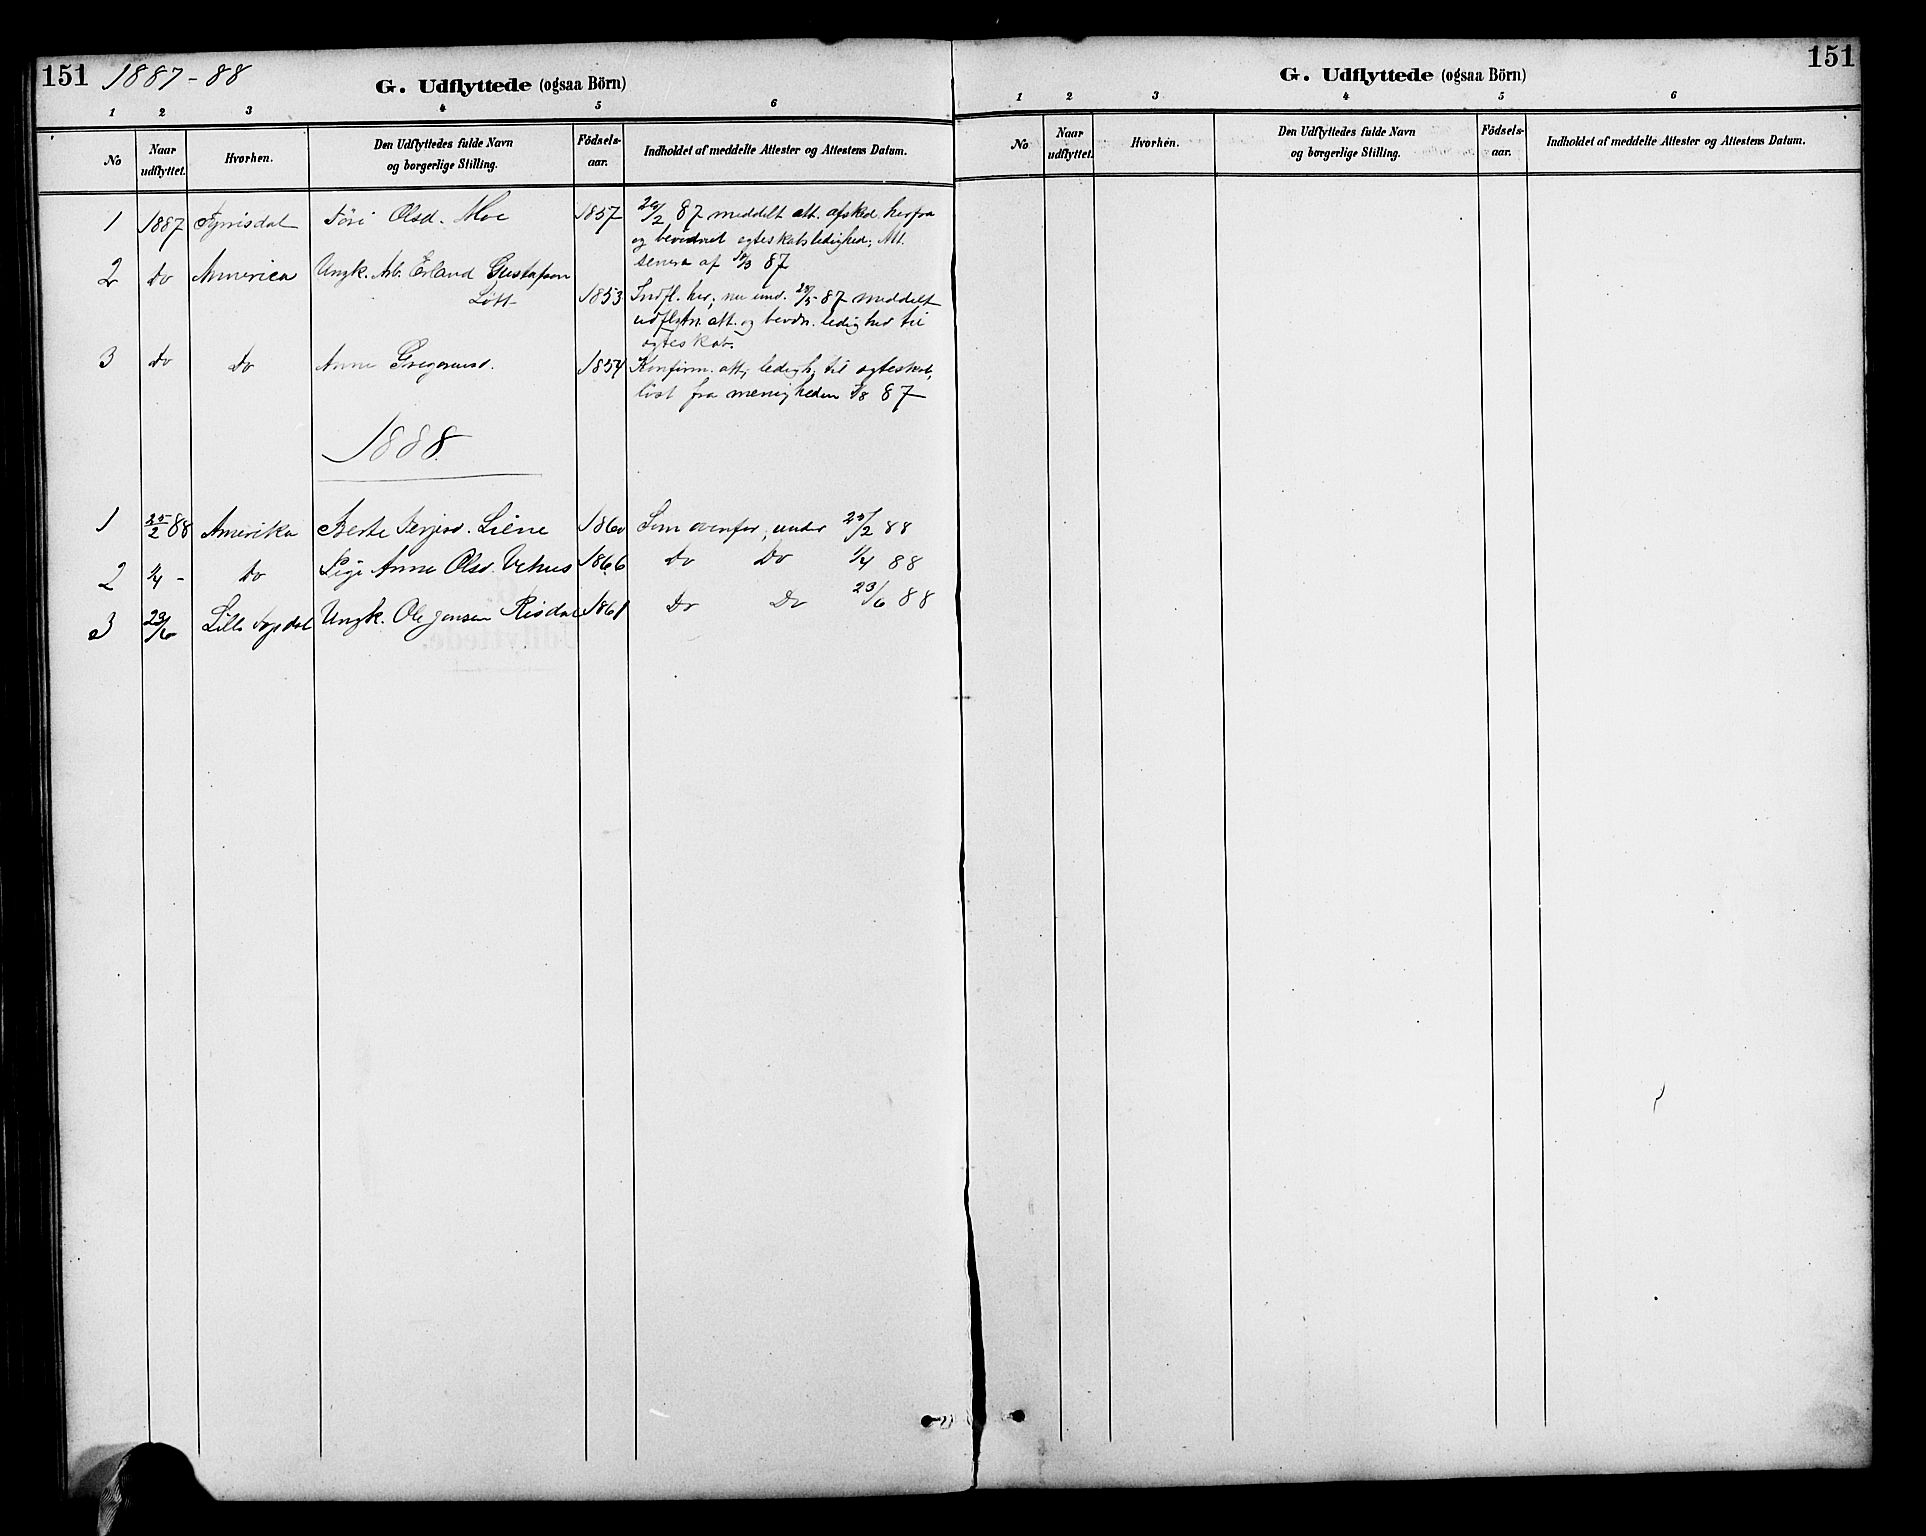 151 1887-88 G. Udflyttede (ogsaa Börn)
1 2 3 4 5 6
No Naar udflyttet. Hvorhen. Den Udflyttedes fulde Navn og borgerlige Stilling. Födsels-aar. Indholdet af meddelte Attester og Attestens Datum.
1 1887 Fyrrisdal Töri Olsd. Moe 1857 26/2 87 meddelt att. afsked herfra
og bevidnet egteskabsledighed; Att.
senere af 87
2 Do America Ungk. Arb. Erland Gustafson
Løtt 1853 Indfl. her; nu und. 23/5 87 meddelt
udflytn. att. og bevidn. ledighed til
egteskab.
3 Do Do Anne Gregersd. 1854 Konfirm. att; ledigh. til egteskab,
løst fra menigheden 87
1888
1 25/2 88 Amerika Berte Terjesd. Liene 1860 Som ovenfor, under 25/2 88
2 4/4 - Do Pige Anne Olsd. Vehus 1866 Do Do 4/4 88
3 23/6 Lille Topdal Ungk. Ole Jensen Risdal 1861 Do Do 23/6 88
G. Udflyttede (ogsaa Börn) 151
1 2 3 4 5 6
No Naar udflyttet. Hvorhen. Den Udflyttedes fulde Navn og borgerlige Stilling. Födsels-aar. Indholdet af meddelte Attester og Attestens Datum.